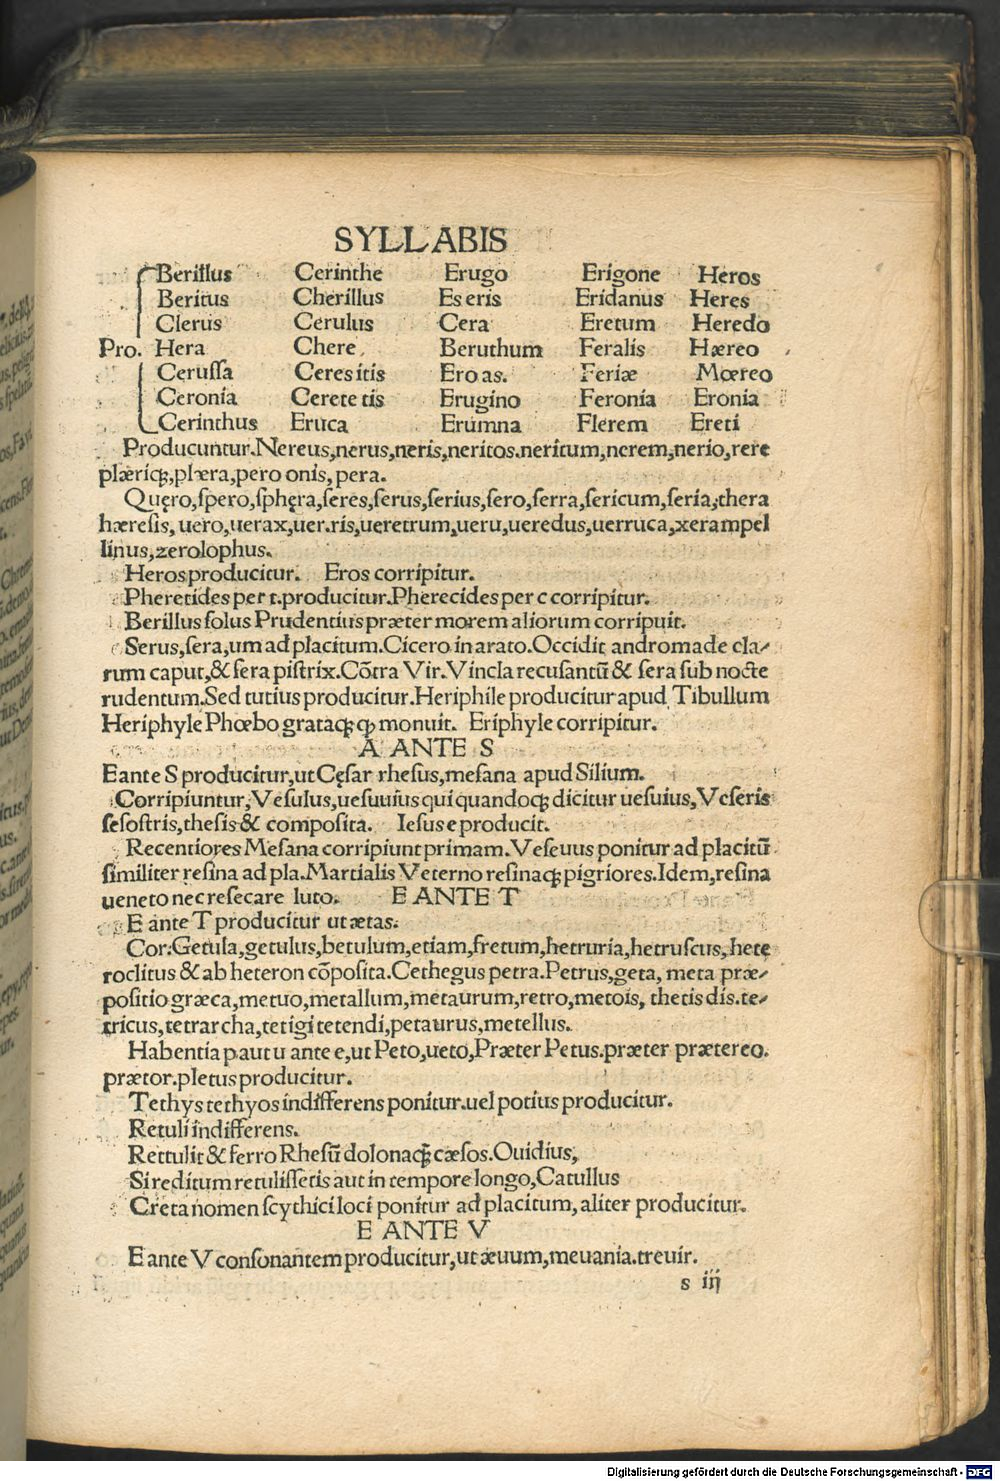 SYLLABIS
Berillus Cerinthe Erugo Erigone Heros
Beritus Cherillus Es eris Eridanus Heres
Clerus Cerulus Cera Eretum Heredo
Pro. Hera Chere Beruthum Feralis Hæreo
Cerussa Ceres itis Ero as. Feriæ Mœreo
Ceronia Cerete tis Erugino Feronia Eronia
Cerinthus Eruca Erumna Flerem Ereti
Producuntur.Nereus,nerus,neris,neritos.neritum,nerem,nerio,rere
plæriqꝫ,plæra,pero onis,pera.
Quęro,ſpero,ſphęra,ſeres,ſerus,ſerius,ſero,ſerra,ſericum,ſeria,thera
hæreſis, uero,uerax,uer.ris,ueretrum,ueru,ueredus,uerruca,xerampel
linus,zerolophus.
Heros producitur. Eros corripitur.
Pheretides per t.producitur.Pherecides per c corripitur.
Berillus ſolus Prudentius præter morem aliorum corripuit.
Serus,ſera,um ad placitum.Cicero in arato.Occidit andromade cla-
rum caput,& ſera piſtrix.Cõtra Vir.Vincla recuſantũ & ſera ſub nocte
rudentum.Sed tutius producitur.Heriphile producitur apud Tibullum
Heriphyle Phœbo grataqꝫ ꝙ monuit. Eriphyle corripitur.
A ANTE S
E ante S producitur,ut Cęſar rheſus,meſana apud Silium.
Corripiuntur,Veſulus,ueſuuius qui quandoqꝫ dicitur ueſuius,Veſeris
ſeſoſtris,theſis & compoſita. Ieſus e producit.
Recentiores Meſana corripiunt primam.Veſeuus ponitur ad placitũ
ſimiliter reſina ad pla.Martialis Veterno reſinaqꝫ pigriores.Idem,reſina
ueneto nec reſecare luto. E ANTE T
E ante T producitur ut ætas.
Cor.Getula,getulus,betulum,etiam,fretum,hetruria,hetruſcus,hete
roclitus & ab heteron cõpoſita.Cethegus petra.Petrus,geta, meta præ-
poſitio græca,metuo,metallum,metaurum,retro,metois, thetis dis.te-
tricus,tetrarcha,tetigi tetendi,petaurus,metellus.
Habentia p aut u ante e,ut Peto,ueto,Præter Petus.præter prætereo.
prætor.pletus producitur.
Tethys tethyos indifferens ponitur.uel potius producitur.
Retuli indifferens.
Rettulit & ferro Rheſũ dolonaqꝫ cæſos.Ouidius,
Si reditum retuliſſetis aut in tempore longo,Catullus
Creta nomen ſcythici loci ponitur ad placitum, aliter producitur.
E ANTE V
E ante V conſonantem producitur,ut æuum,meuania.treuir.
s iij
Digitalisierung gefördert durch die Deutsche Forschungsgemeinschaft - DFG